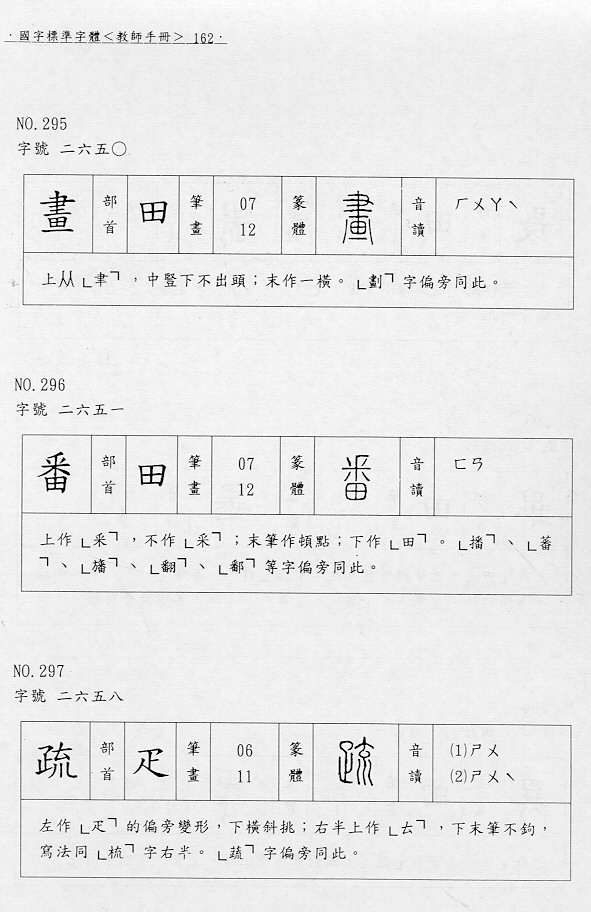 ·國字標準字體＜教師手冊＞ 162·
NO.295
字號 二六五〇
畫 部首 田 筆畫 07 12 篆體 畫 音讀 ㄏㄨㄚˋ
上从「聿」，中豎下不出頭；末作一橫。「劃」字偏旁同此。
NO.296
字號 二六五一
番 部首 田 筆畫 07 12 篆體 番 音讀 ㄈㄢ
上作「釆」，不作「采」；末筆作頓點；下作「田」。「播」、「蕃
」、「旛」、「翻」、「鄱」等字偏旁同此。
NO.297
字號 二六五八
疏 部首 疋 筆畫 06 11 篆體 疏 音讀 ⑴ㄕㄨ ⑵ㄕㄨˋ
左作「疋」的偏旁變形，下橫斜挑；右半上作「𠫓」，下末筆不鉤，
寫法同「梳」字右半。「蔬」字偏旁同此。